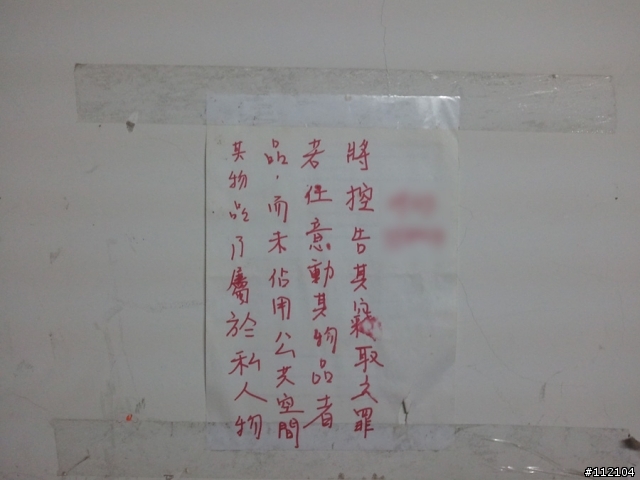 其物品乃屬於私人物
品，而未佔用公共空間
者任意動其物品者
將控告其竊取之罪
#112104